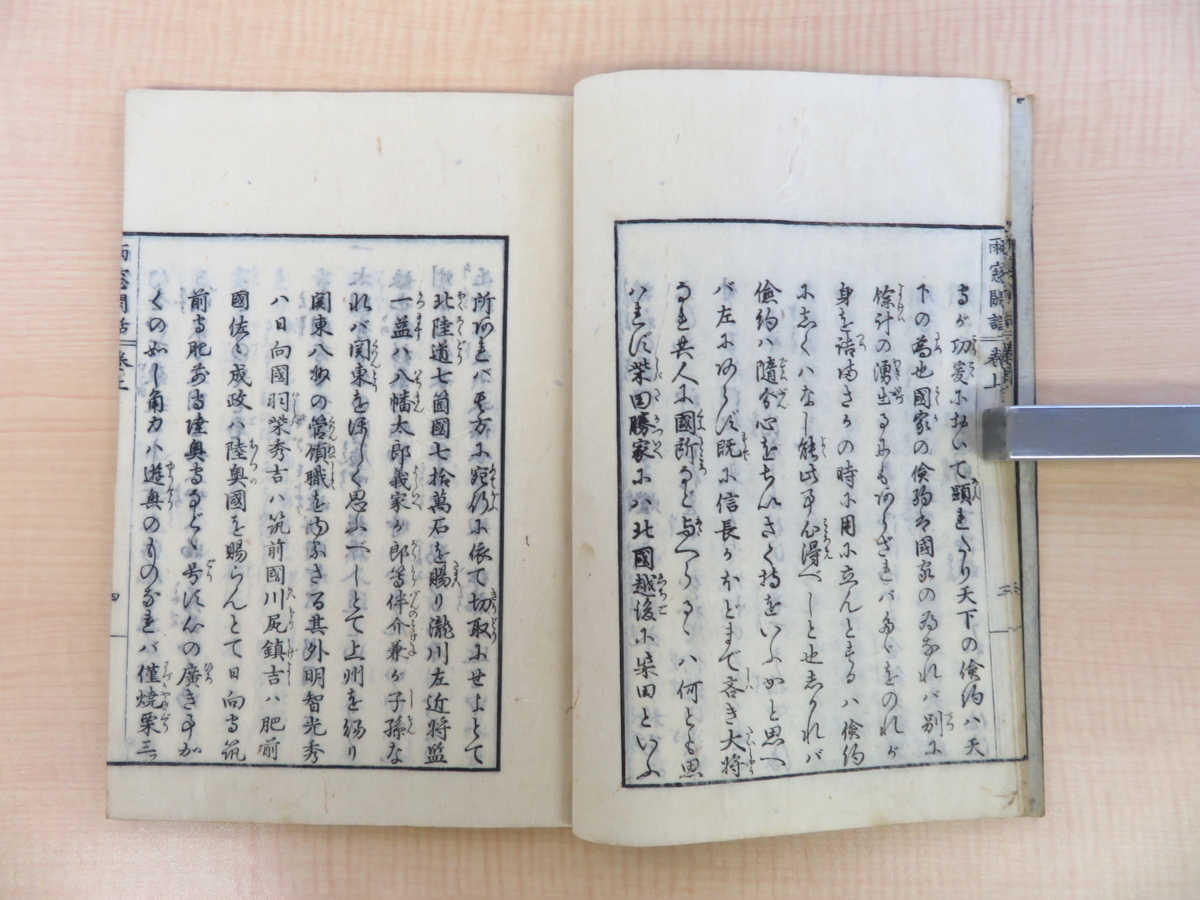 雨窓閑話 巻上 三
守が切変に於いて顕れたり天下の倹約ハ天
下の為也国家の倹約は国家の為なれバ別に
余計の湧出るにもあらざれバ多くをのれが
身を詰めまさかの時に用に立んとするハ倹約
にしくハなし能此事心得べしと也しかれバ
倹約ハ随分心をちいさく持をいふかと思へ
バ左にあらず既に信長がほどまで吝き大将
なれ共人に國郡など与へらるゝハ何とも思
ハれず柴田勝家にハ北國越後に柴田といふ
所あれバ其方に宛行に依て切取にせよとて
北陸道七箇國七拾萬石を賜り瀧川左近将監
一益ハ八幡太郎義家が郎等伴介兼が子孫な
れバ関東をほしく思ふべしとて上州を賜り
関東八州の管領職を与ふさる其外明智光秀
ハ日向國羽柴秀吉ハ筑前國川尻鎮吉ハ肥前
國佐々成政ハ陸奥國を賜らんとて日向守筑
前守肥前守陸奥守などゝ号す心の廣き事か
くの如し角力ハ遊興のものなれバ僅焼栗三
雨窓閑話 巻上 四